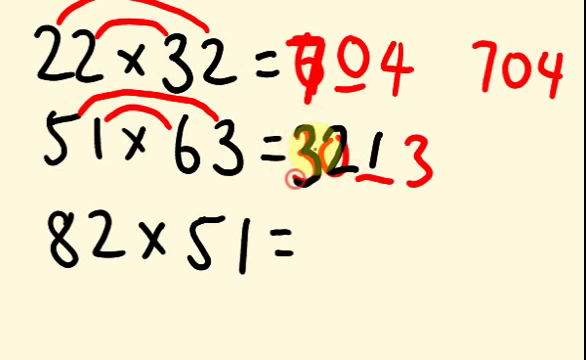 22 × 32 = 704 704
51 × 63 = 3213
82 × 51 =